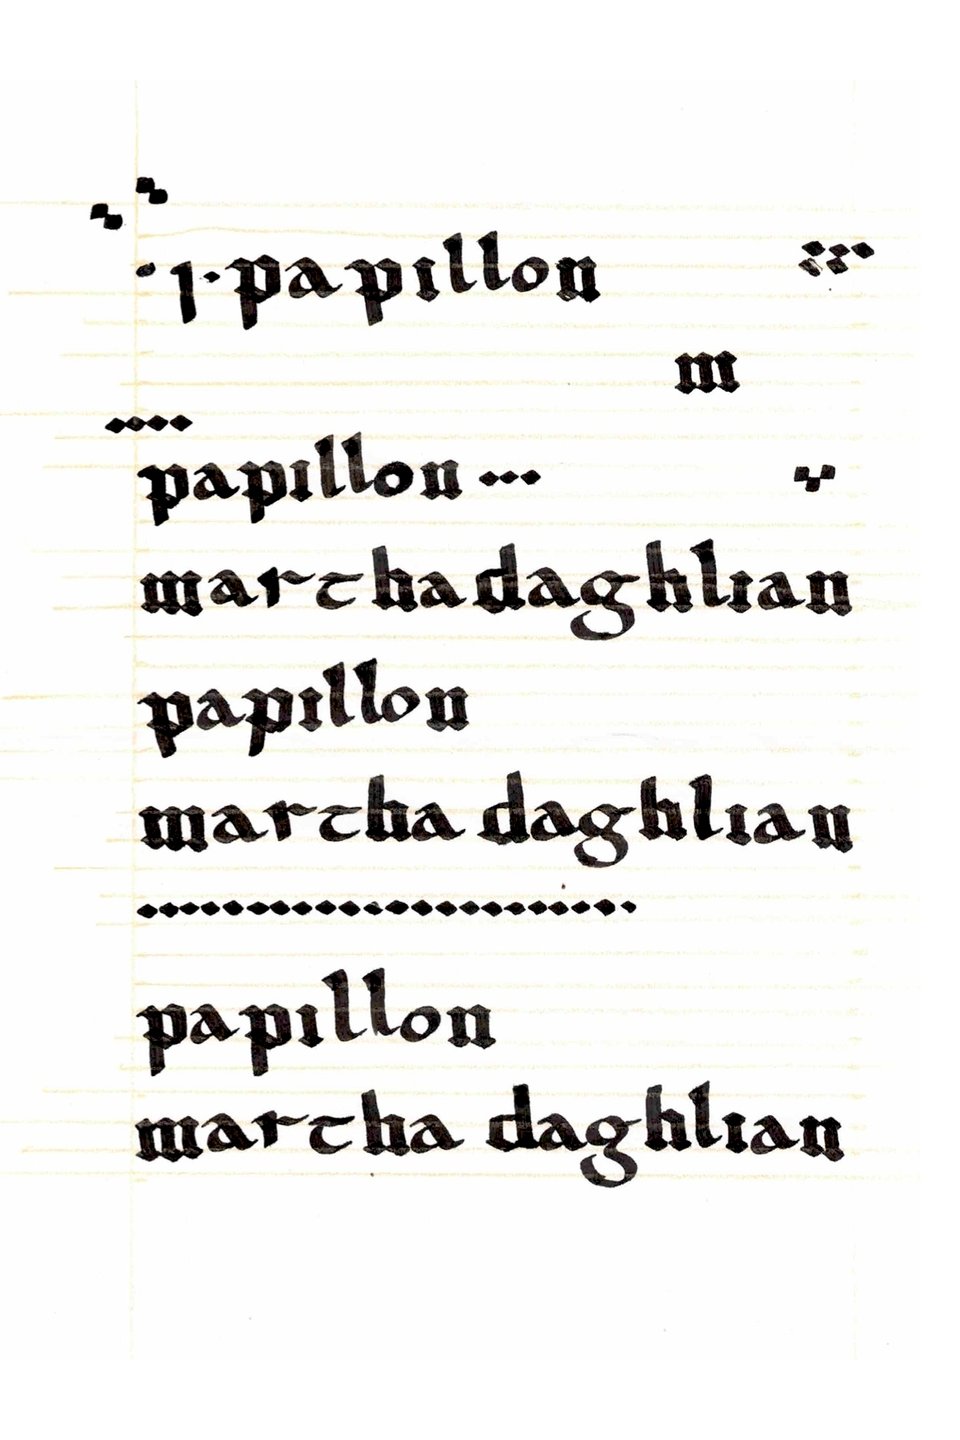 ·1·papillon
m
papillon···
martha daghlian
papillon
martha daghlian
papillon
martha daghlian